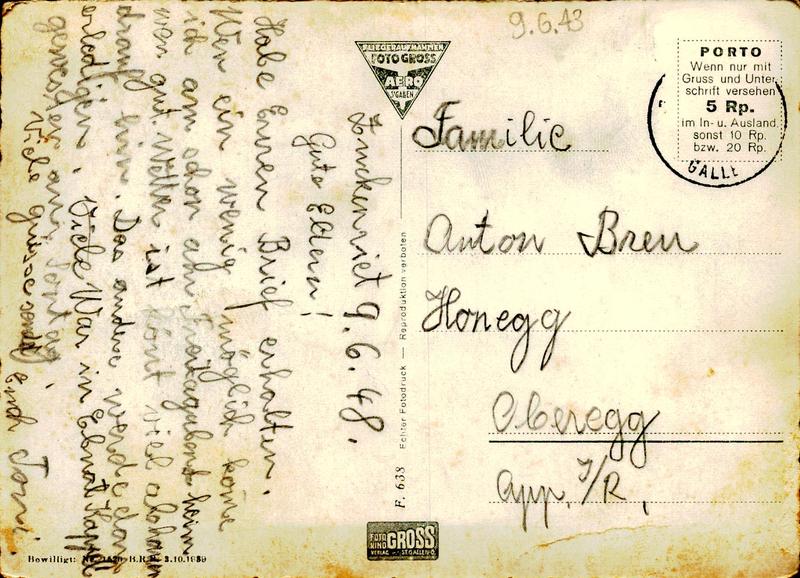 9.6.43
FLIEGERAUFNAHMEN
FOTO GROSS
AERO
ST. GALLEN
PORTO
Wenn nur mit
Gruss und Unter-
schrift versehen
5 Rp.
im In- u. Ausland
sonst 10 Rp.
bzw. 20 Rp.
GALLE
Familie
Anton Breu
Honegg
Oberegg
App. I/R.
Zuckenriet 9.6.48.
Gute Eltern!
Habe Euren Brief erhalten.
Wen ein wenig möglich kome
ich am schon am Freitagabent heim
wen gut Wetter ist könt viel
drauf hin. Das andre werde dan
erledigen. Viele War in Ebnat Kappel
gewesen am Sontag.
Viele grüsse Euch Toni.
F. 638 — Echter Fotodruck — Reproduktion verboten
FOTO KINO GROSS
VERLAG ST. GALLEN
Bewilligt: B.R.B. 3.10.1939